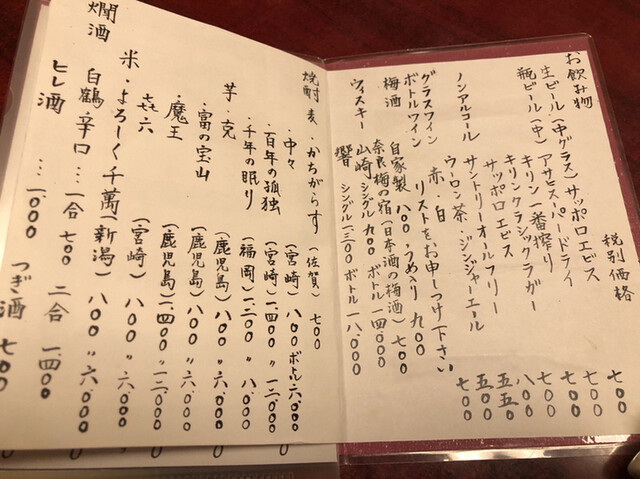 お飲み物　税別価格
生ビール（中グラス）サッポロエビス　七〇〇
瓶ビール（中）アサヒスーパードライ　七〇〇
キリン一番搾り　七〇〇
キリンクラシックラガー　七〇〇
サッポロエビス　八〇〇
ノンアルコール　サントリーオールフリー　五五〇
ウーロン茶・ジンジャーエール　五〇〇
グラスワイン　赤・白　七〇〇
ボトルワイン　リストをお申しつけ下さい
梅酒　自家製　八〇〇、うめ入り　九〇〇
奈良梅の宿（日本酒の梅酒）七〇〇
ウィスキー　山崎　シングル　九〇〇　ボトル　一四、〇〇〇
響　シングル　一、二〇〇　ボトル　一八、〇〇〇
焼酎　麦・かちがらす（佐賀）七〇〇
・中々（宮崎）八〇〇　ボトル　六、〇〇〇
・百年の孤独（宮崎）一、四〇〇　〃　一二、〇〇〇
・千年の眠り（福岡）一、二〇〇　〃　八、〇〇〇
芋・克（鹿児島）八〇〇　〃　六、〇〇〇
・富の宝山（鹿児島）八〇〇　〃　六、〇〇〇
・魔王（鹿児島）一、四〇〇　〃　一二、〇〇〇
・㐂六（宮崎）八〇〇　〃　六、〇〇〇
米・よろしく千萬（新潟）八〇〇　〃　六、〇〇〇
燗酒　白鶴・辛口…　一合　七〇〇　二合　一、四〇〇
ヒレ酒…　一、〇〇〇　つぎ酒　七〇〇